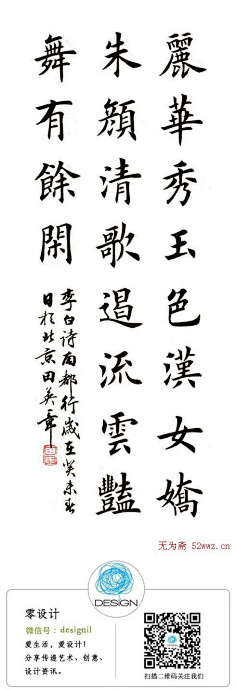 麗華秀玉色漢女嬌
朱顔清歌遏流雲豔
舞有餘閑
李白诗南都行歲在癸未春
日於北京田英章
无为斋 52wwz.cn
DESIGN
零设计
微信号：designil
爱生活，爱设计！
分享传递艺术、创意、
设计资讯。
扫描二维码关注我们